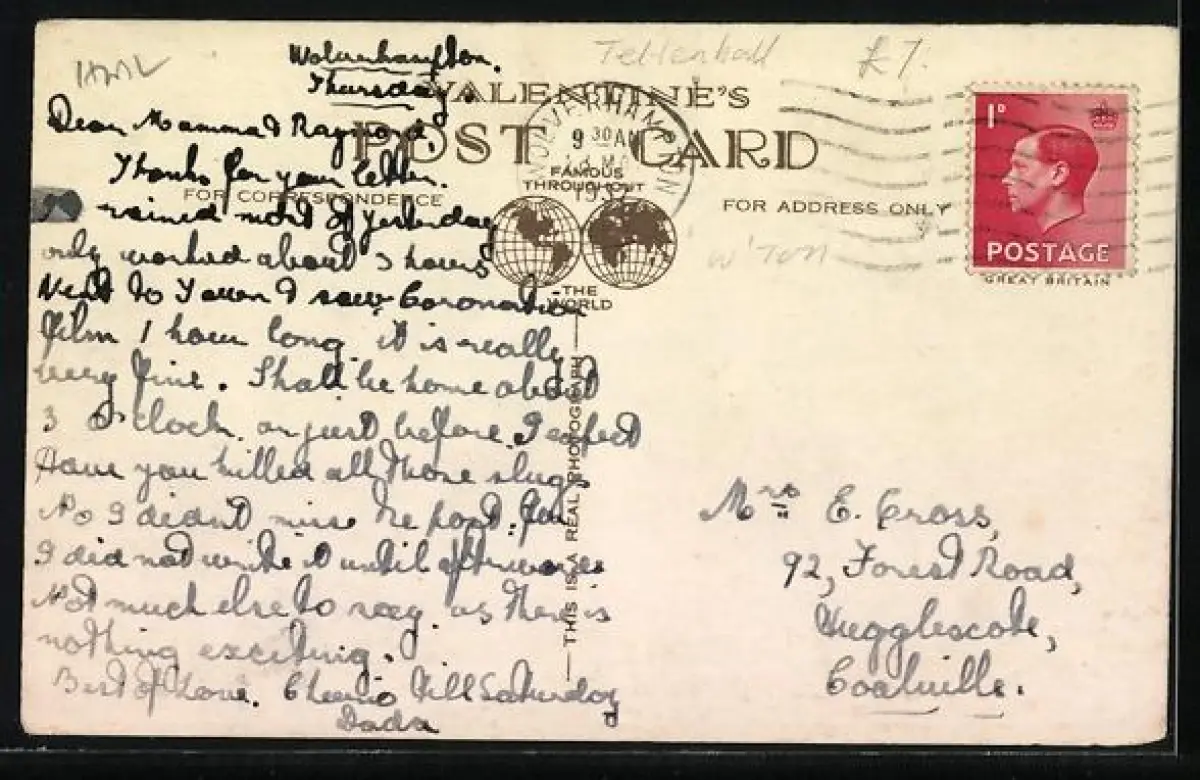 Wolverhampton.
Thursday.
Tettenhall
£7.
VALENTINE'S
POST CARD
FOR CORRESPONDENCE
FAMOUS
THROUGHOUT
THE
WORLD
FOR ADDRESS ONLY
WOLVERHAMPTON
9 30 AM
1937
1D
POSTAGE
GREAT BRITAIN
W'TON
Dear Mamma & Raymond,
Thanks for your letter.
rained most of yesterday
only worked about 3 hours
Went to Town & saw Coronation
film 1 hour long. it is really
very fine. Shall be home about
3 o'clock. or just before I expect
Have you killed all those slugs
No I didn't miss the post. for
I did not write it until afterwards
Not much else to say. as there is
nothing exciting.
Best of Love. Cheerio till Saturday
Dada
THIS IS A REAL PHOTOGRAPH
Mrs E. Cross,
92, Forest Road,
Hugglescote,
Coalville.